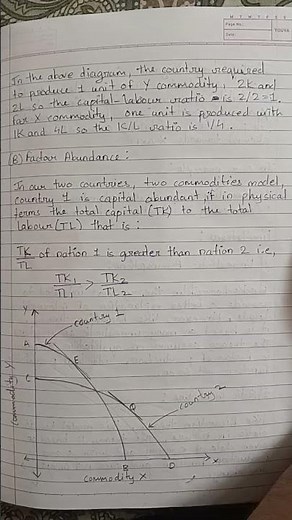 Page No.
Date:
YOUVA
In the above diagram, the country required
to produce 1 unit of Y commodity, 2K and
2L so the capital-labour ratio is 2/2=1.
For X commodity, one unit is produced with
1K and 4L so the K/L ratio is 1/4.
(B) Factor Abundance:
In our two countries, two commodities model,
country 1 is capital abundant, if in physical
terms the total capital (TK) to the total
labour (TL) that is:
TK/TL of nation 1 is greater than nation 2 i.e,
TK1/TL1 > TK2/TL2
Y
country 1
A
E
C
Q
country 2
commodity Y
B
D
X
commodity X